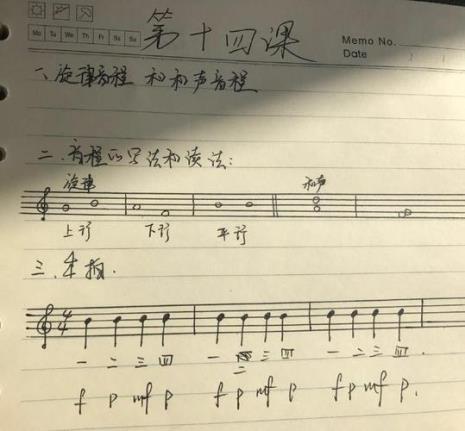 Mo Tu We Th Fr Sa Su
第十四课
Memo No.
Date
一、旋律音程 和和声音程
二、音程的写法和读法:
旋律 和声
上行 下行 平行
三、4/4拍.
4/4
一 二 三 四 一 二 三 四 一 二 三 四.
f p mf p f p mf p f p mf p.